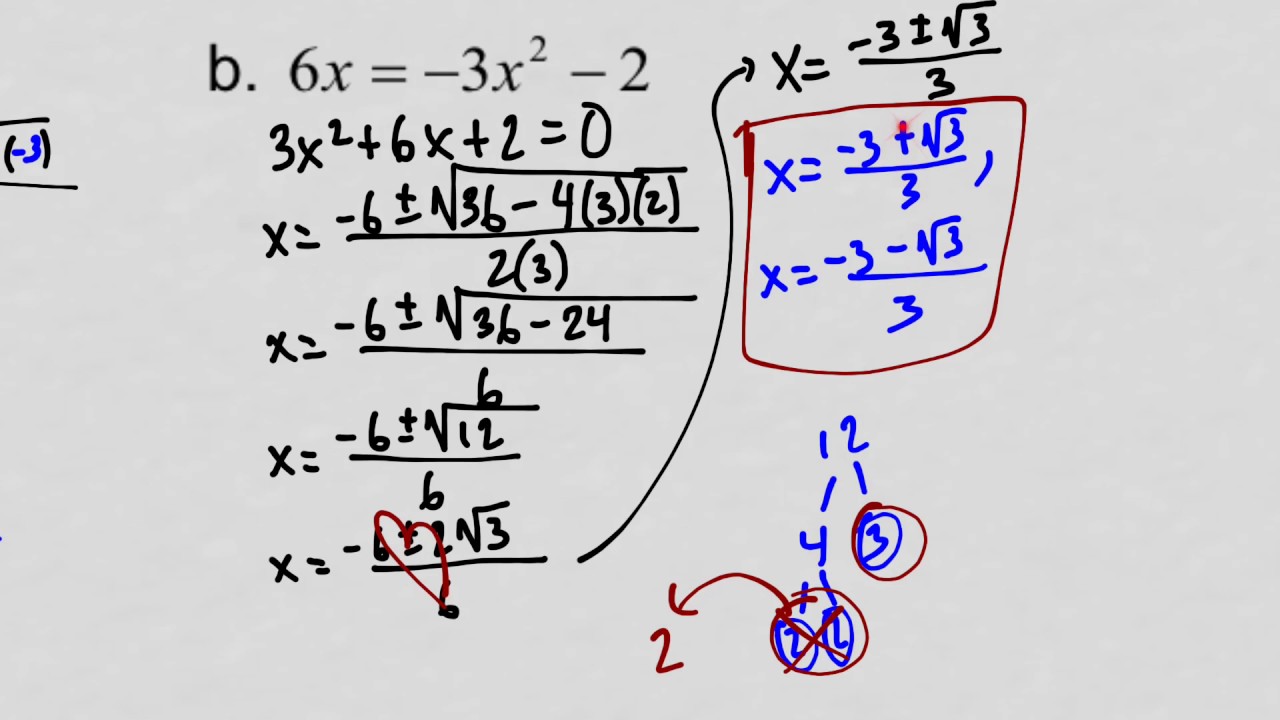 b. 6x = −3x² − 2
3x² + 6x + 2 = 0
x = (-6 ± √(36 − 4(3)(2))) / 2(3)
x = (-6 ± √(36 − 24)) / 6
x = (-6 ± √12) / 6
x = (-6 ± 2√3) / 6
x = (-3 ± √3) / 3
x = (-3 + √3) / 3,
x = (-3 − √3) / 3
12
4 3
2 2
2
(-3)